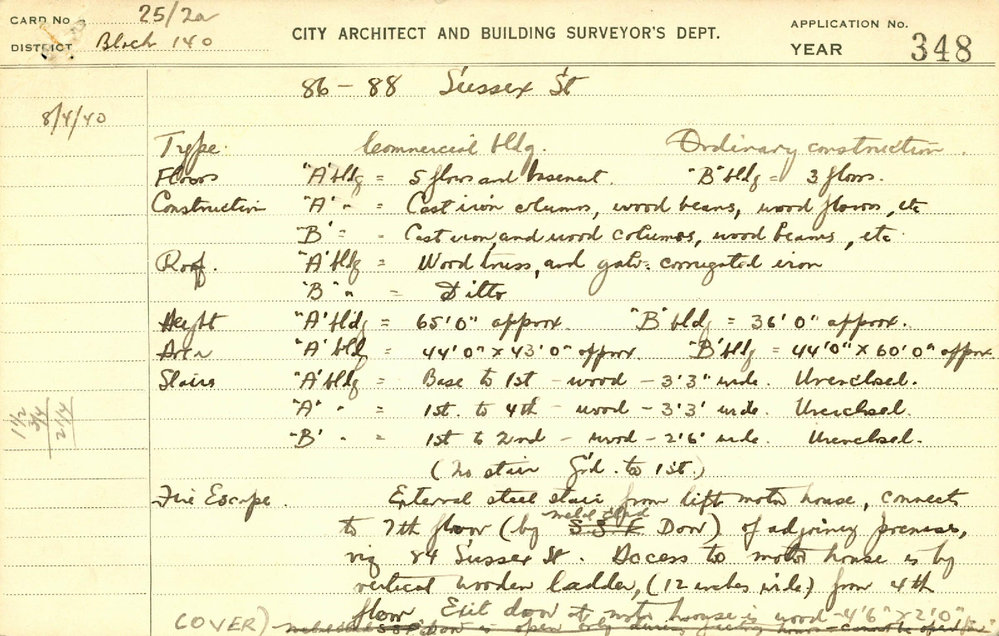 CARD No 25/2a
DISTRICT Block 140
CITY ARCHITECT AND BUILDING SURVEYOR'S DEPT.
APPLICATION No.
YEAR 348
86 - 88 Sussex St
8/4/40
Type. Commercial bldg. Ordinary construction.
Floors "A" bldg = 5 floors and basement. "B" bldg = 3 floors.
Construction "A" " = Cast iron columns, wood beams, wood floors, etc
"B" " = Cast iron, and wood columns, wood beams, etc
Roof. "A" bldg = Wood truss, and galv. corrugated iron
"B" " = Ditto
Height "A" bldg = 65'0" approx. "B" bldg = 36'0" approx.
Area "A" bldg = 44'0" x 43'0" approx. "B" bldg = 44'0" x 60'0" approx.
Stairs "A" bldg = Base to 1st - wood - 3'3" wide. Unenclosed.
"A" " = 1st. to 4th - wood - 3'3' wide. Unenclosed.
"B" " = 1st to 2nd - wood - 2'6" wide. Unenclosed.
1 1/2
3/4
2 1/4
(No stair Grd. to 1st.)
Fire Escape. External steel stair from lift motor house, connects
metal clad
to 7th floor (by S.S.F. Door) of adjoining premises,
viz 84 Sussex St. Access to motor house is by
vertical wooden ladder, (12 inches wide) from 4th
floor Exit door to motor house is wood - 4'6" x 2'0"
(OVER) door is open only during